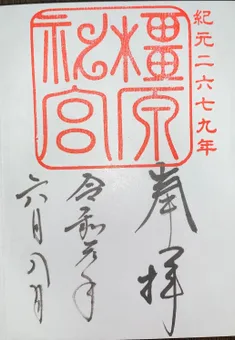 紀元二六七九年
橿原
神宮
奉拝
令和元年
六月八日